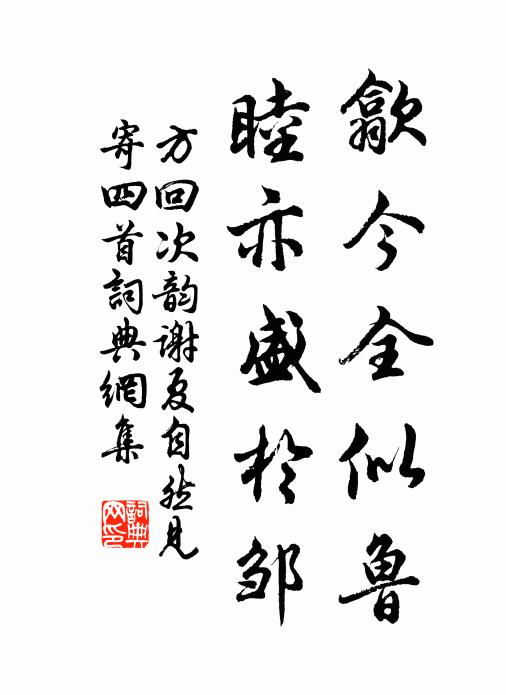 歙今全似魯
睦亦盛於邹
方回次韵謝夏自然見
寄四首詞典網集
詞典网印